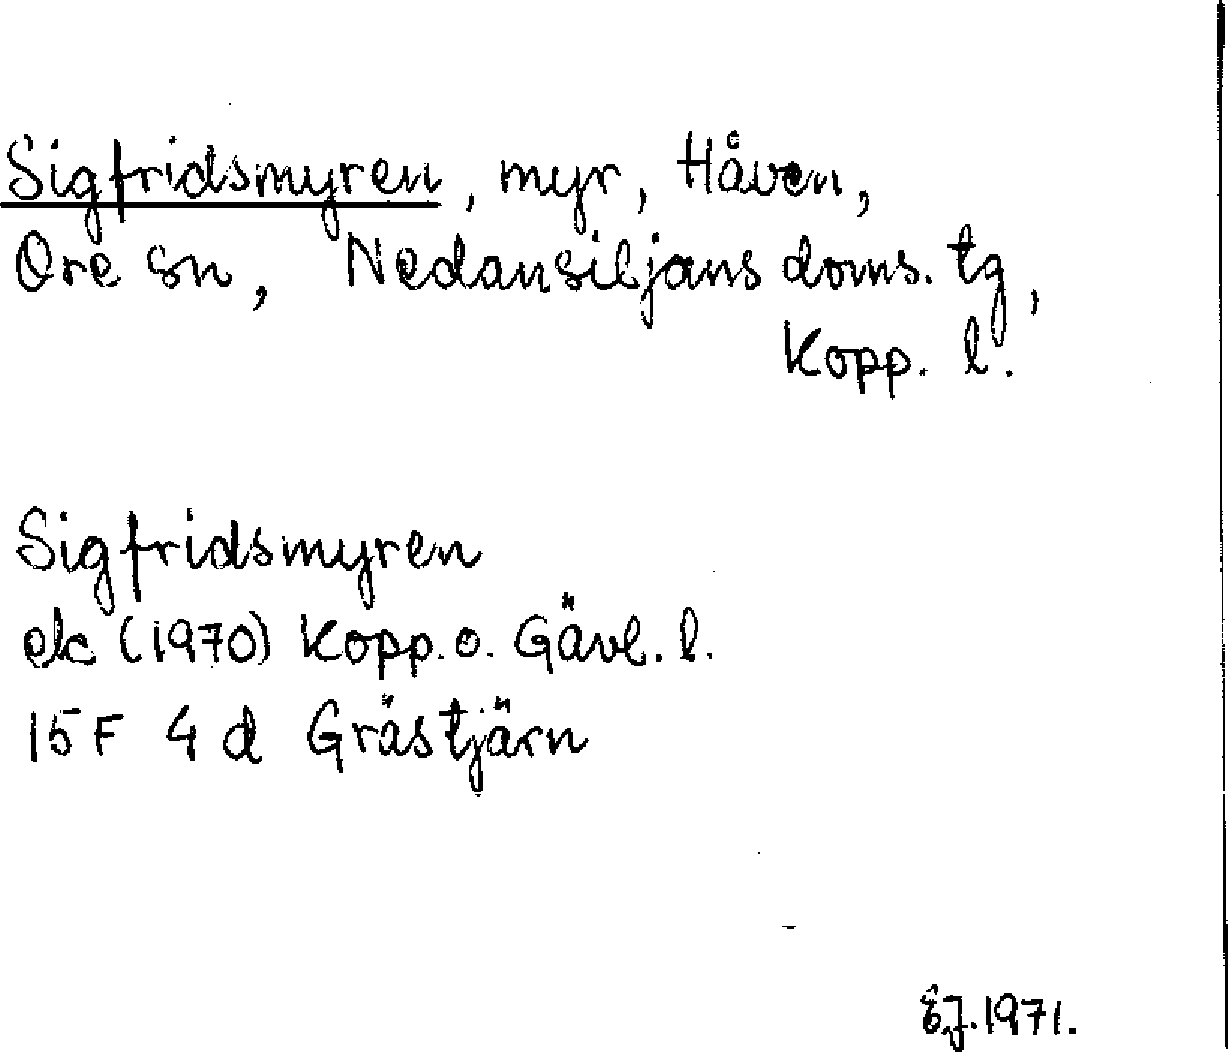 Sigfridsmyren, myr, Håven,
Ore sn, Nedansiljans doms. tg,
Kopp. l.
Sigfridsmyren
ek (1970) Kopp. o. Gävl. l.
15 F 4 d Grästjärn
E.J. 1971.